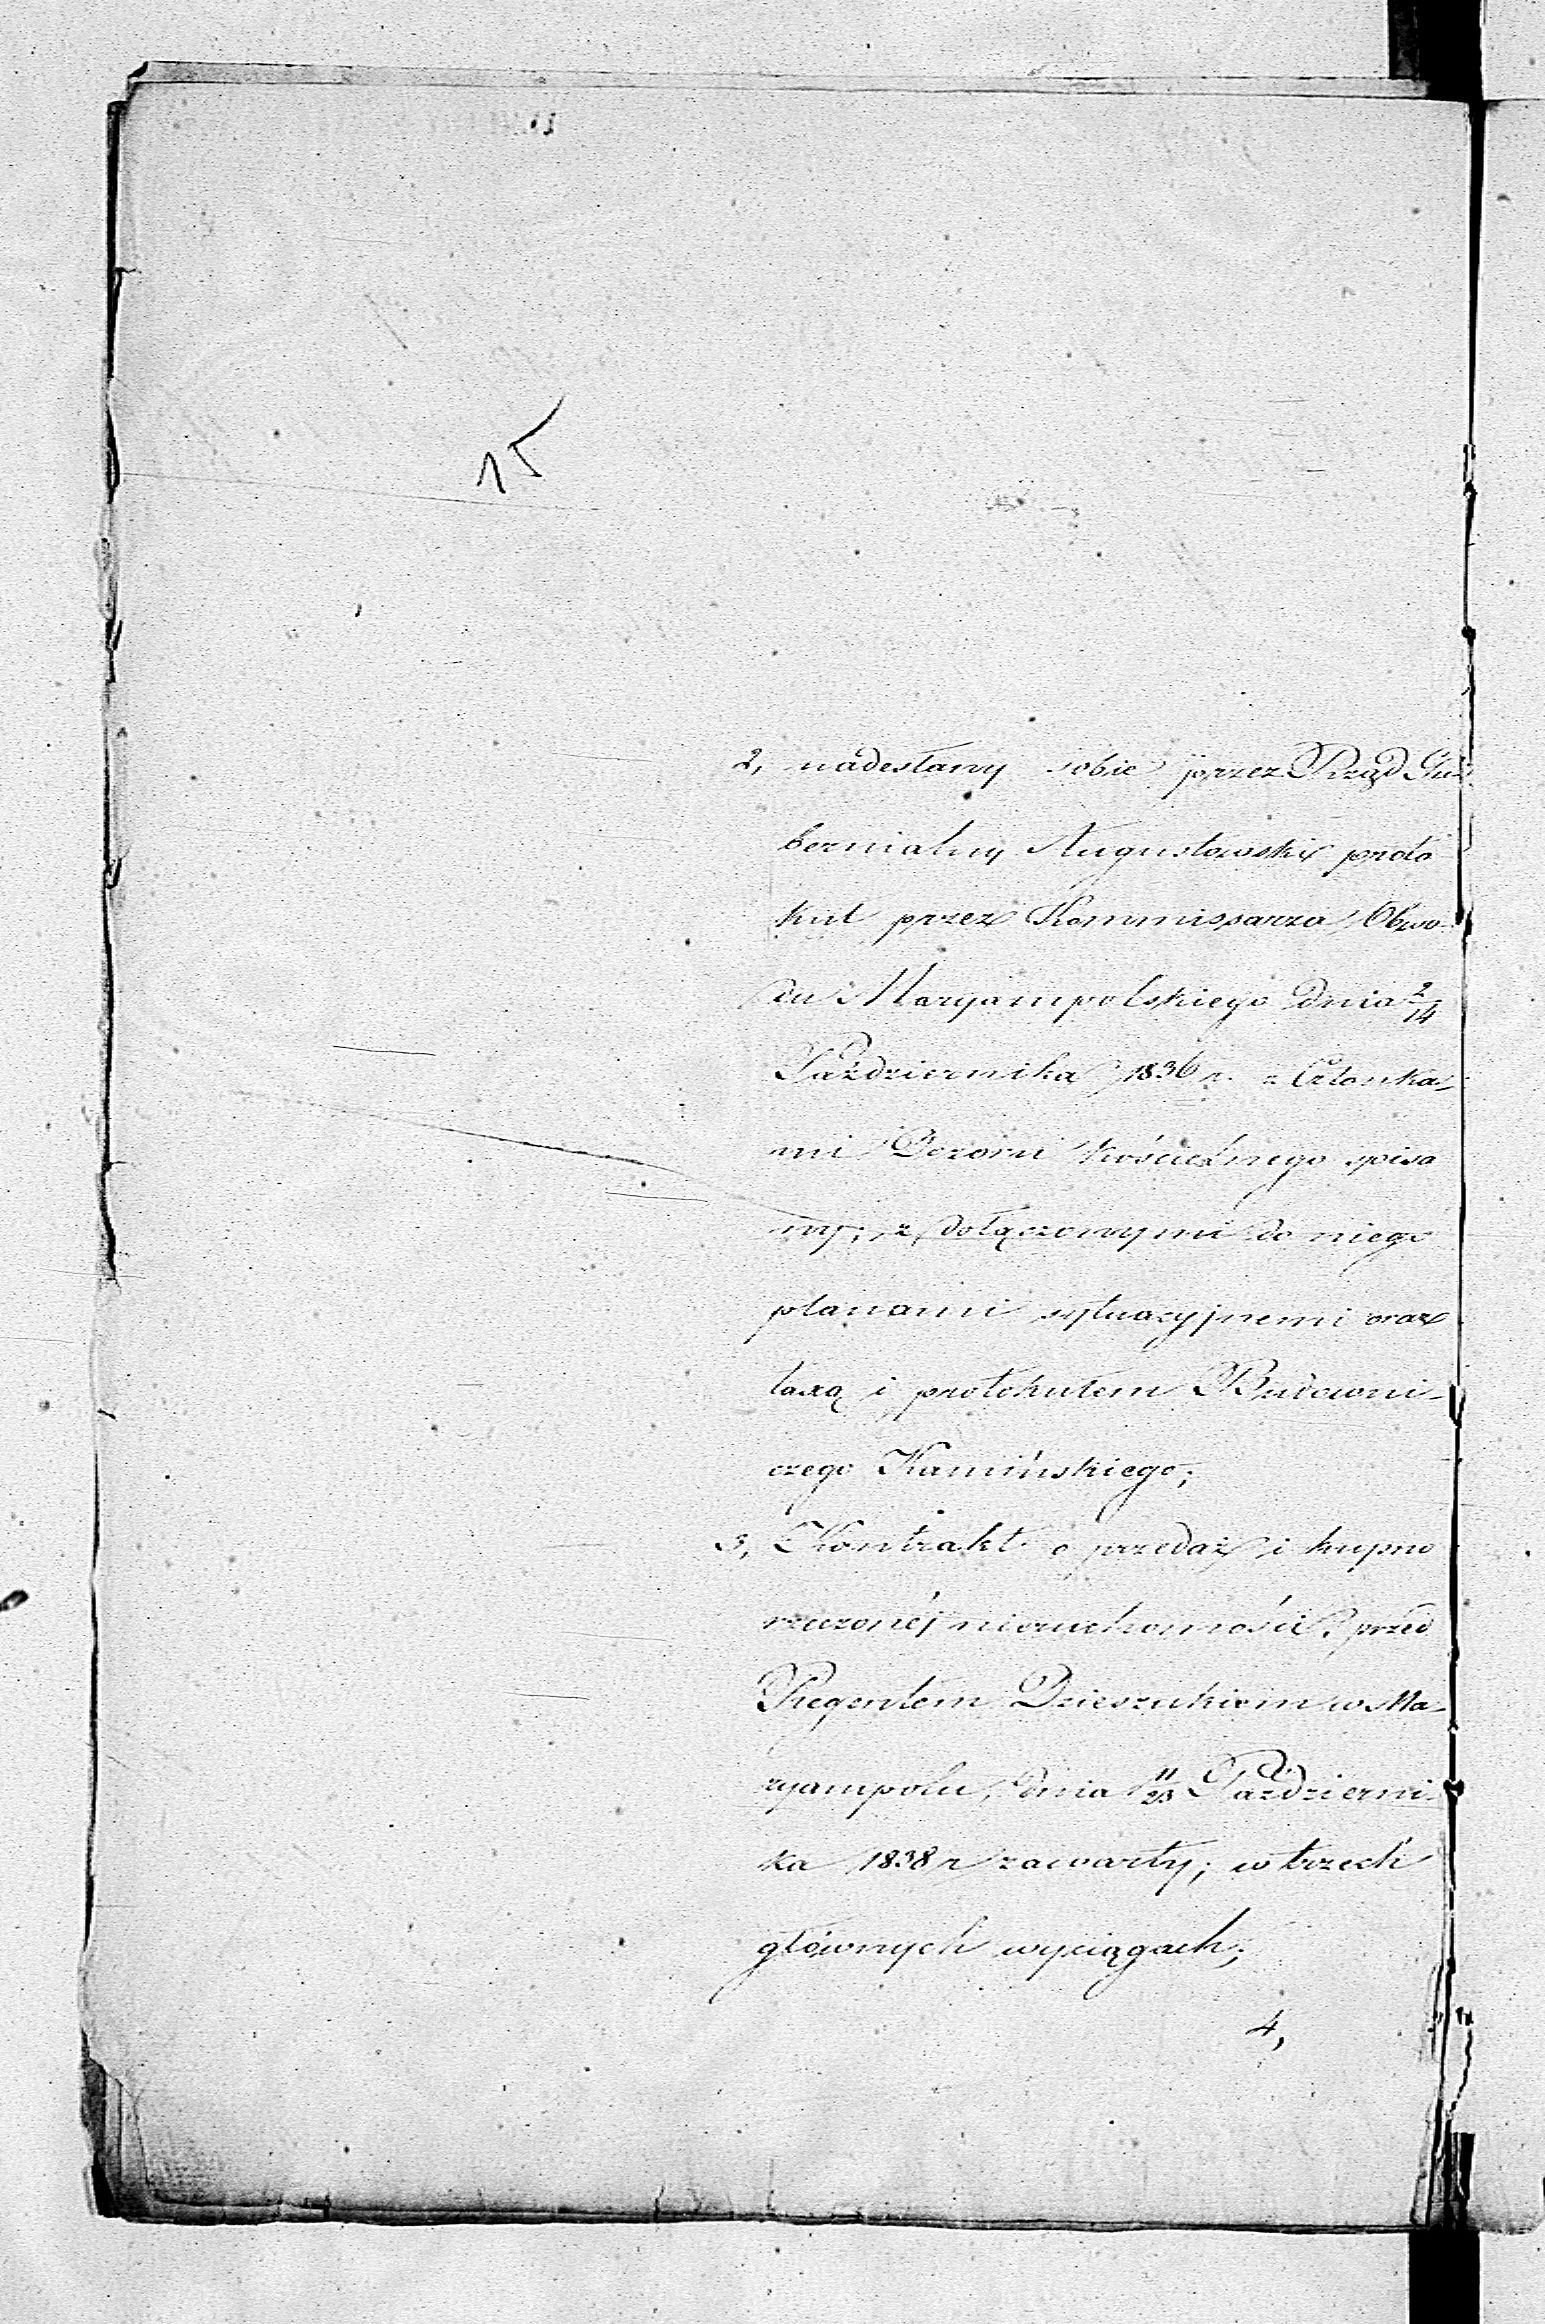 15
2, nadesłany sobie przez Rząd Gu-
bernialny Augustowski proto
kuł przez Kommissarza Obwo-
du Maryampolskiego dnia 2/14
Października 1836 r. z Członka-
mi Dozoru kościelnego spisa
ny; z dołączonymi do niego
planami sytuacyjnemi oraz
taxą i protokułem Budowni-
czego Kamińskiego;
3, Kontrakt o przedaż i kupno
rzeczonéj nieruchomości, przed
Regentem Dzieszukiem w Ma-
ryampolu, dnia 11/23 Październi-
ka 1838 r zawarty; w trzech
głównych wyciągach;
4,